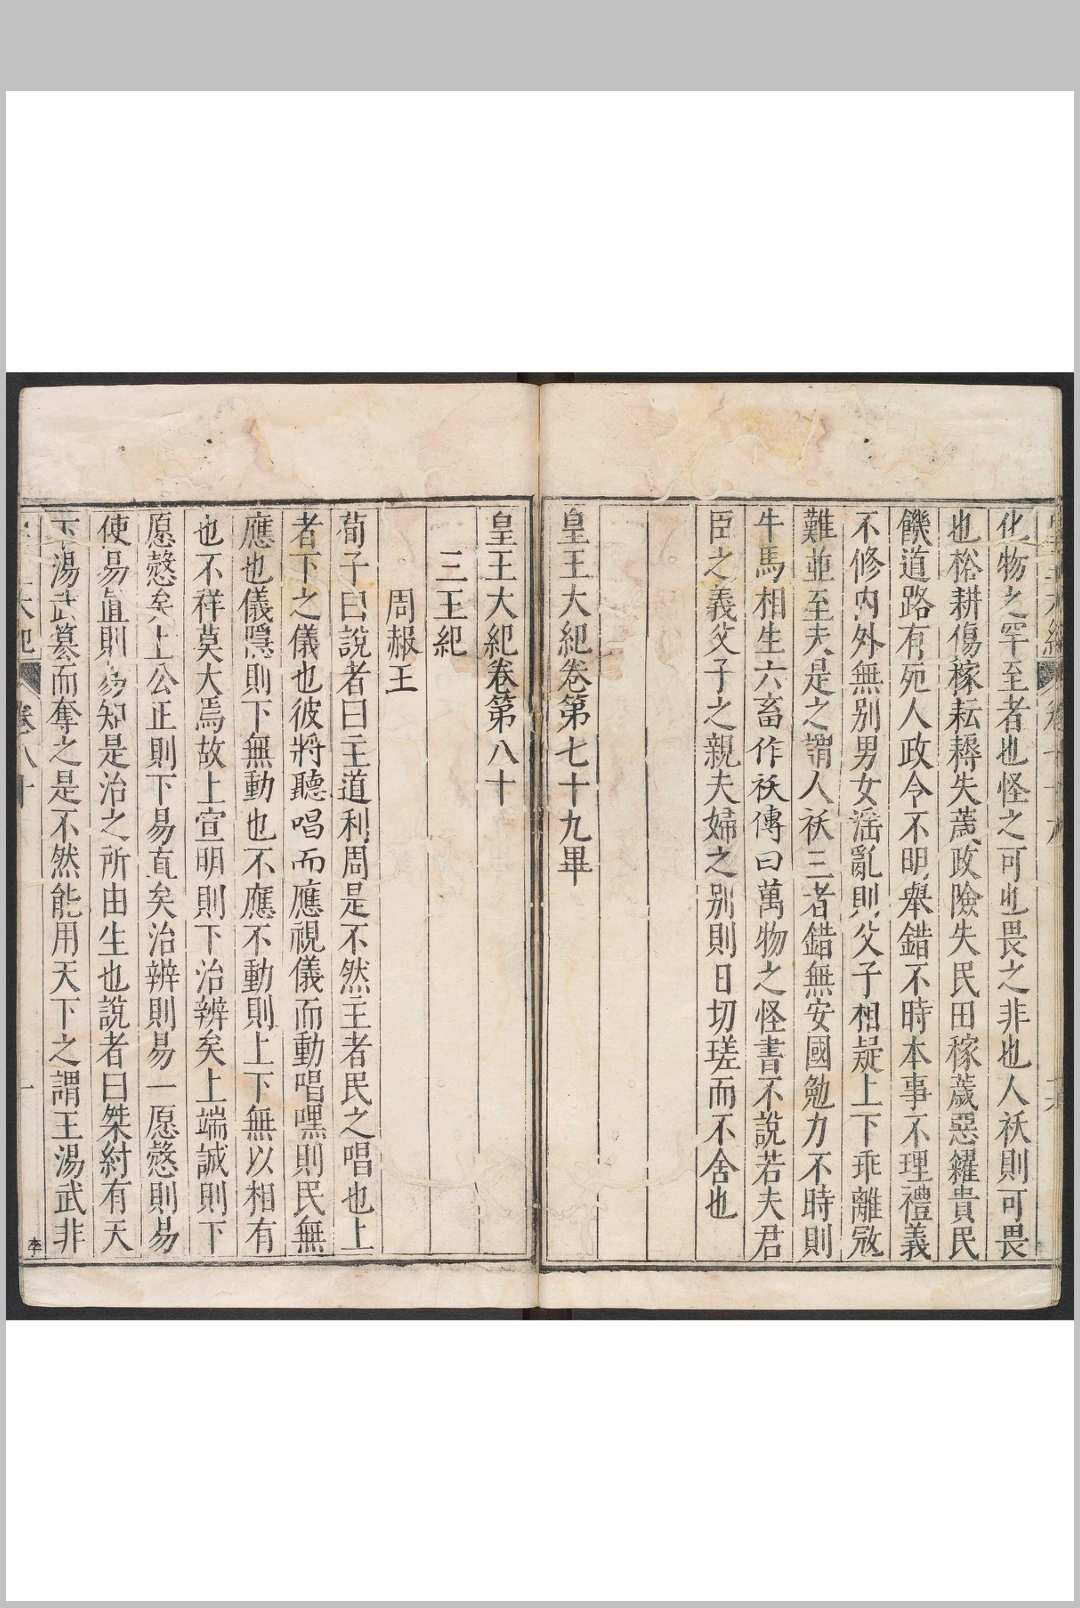 化物之罕至者也怪之可也畏之非也人祅則可畏
也楛耕傷稼耘耨失薉政險失民田稼薉惡糴貴民
饑道路有死人政令不明舉錯不時本事不理禮義
不修内外無别男女淫亂則父子相疑上下乖離宼
難並至夫是之謂人祅三者錯無安國勉力不時則
牛馬相生六畜作祅傳曰萬物之怪書不說若夫君
臣之義父子之親夫婦之别則日切瑳而不舍也
皇王大紀卷第七十九畢
皇王大紀卷第八十
三王紀
周赧王
荀子曰說者曰主道利周是不然主者民之唱也上
者下之儀也彼將聽唱而應視儀而動唱嘿則民無
應也儀隱則下無動也不應不動則上下無以相有
也不祥莫大焉故上宣明則下治辨矣上端誠則下
愿慤矣上公正則下易直矣治辨則易一愿慤則易
使易直則易知是治之所由生也說者曰桀紂有天
下湯武簒而奪之是不然能用天下之謂王湯武非
大紀 卷八十 一
李